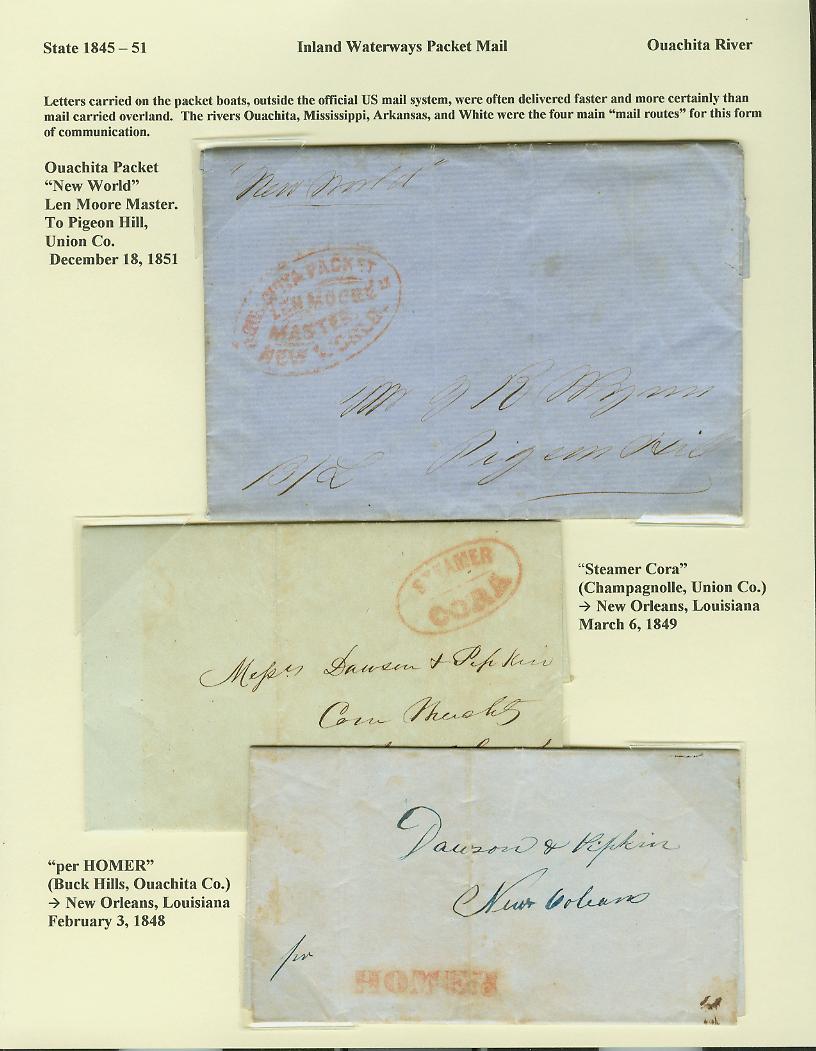 State 1845 – 51
Inland Waterways Packet Mail
Ouachita River
Letters carried on the packet boats, outside the official US mail system, were often delivered faster and more certainly than
mail carried overland. The rivers Ouachita, Mississippi, Arkansas, and White were the four main “mail routes” for this form
of communication.
Ouachita Packet
“New World”
Len Moore Master.
To Pigeon Hill,
Union Co.
December 18, 1851
"New World"
OUACHITA PACKET
LEN MOORE
MASTER.
Mr J R Wynn
B/L Pigeon Hill
“Steamer Cora”
(Champagnolle, Union Co.)
→ New Orleans, Louisiana
March 6, 1849
STEAMER
CORA
Messrs Dawson & Pipkin
Com Merchts
“per HOMER”
(Buck Hills, Ouachita Co.)
→ New Orleans, Louisiana
February 3, 1848
Dawson & Pipkin
New Orleans
pr
HOMER